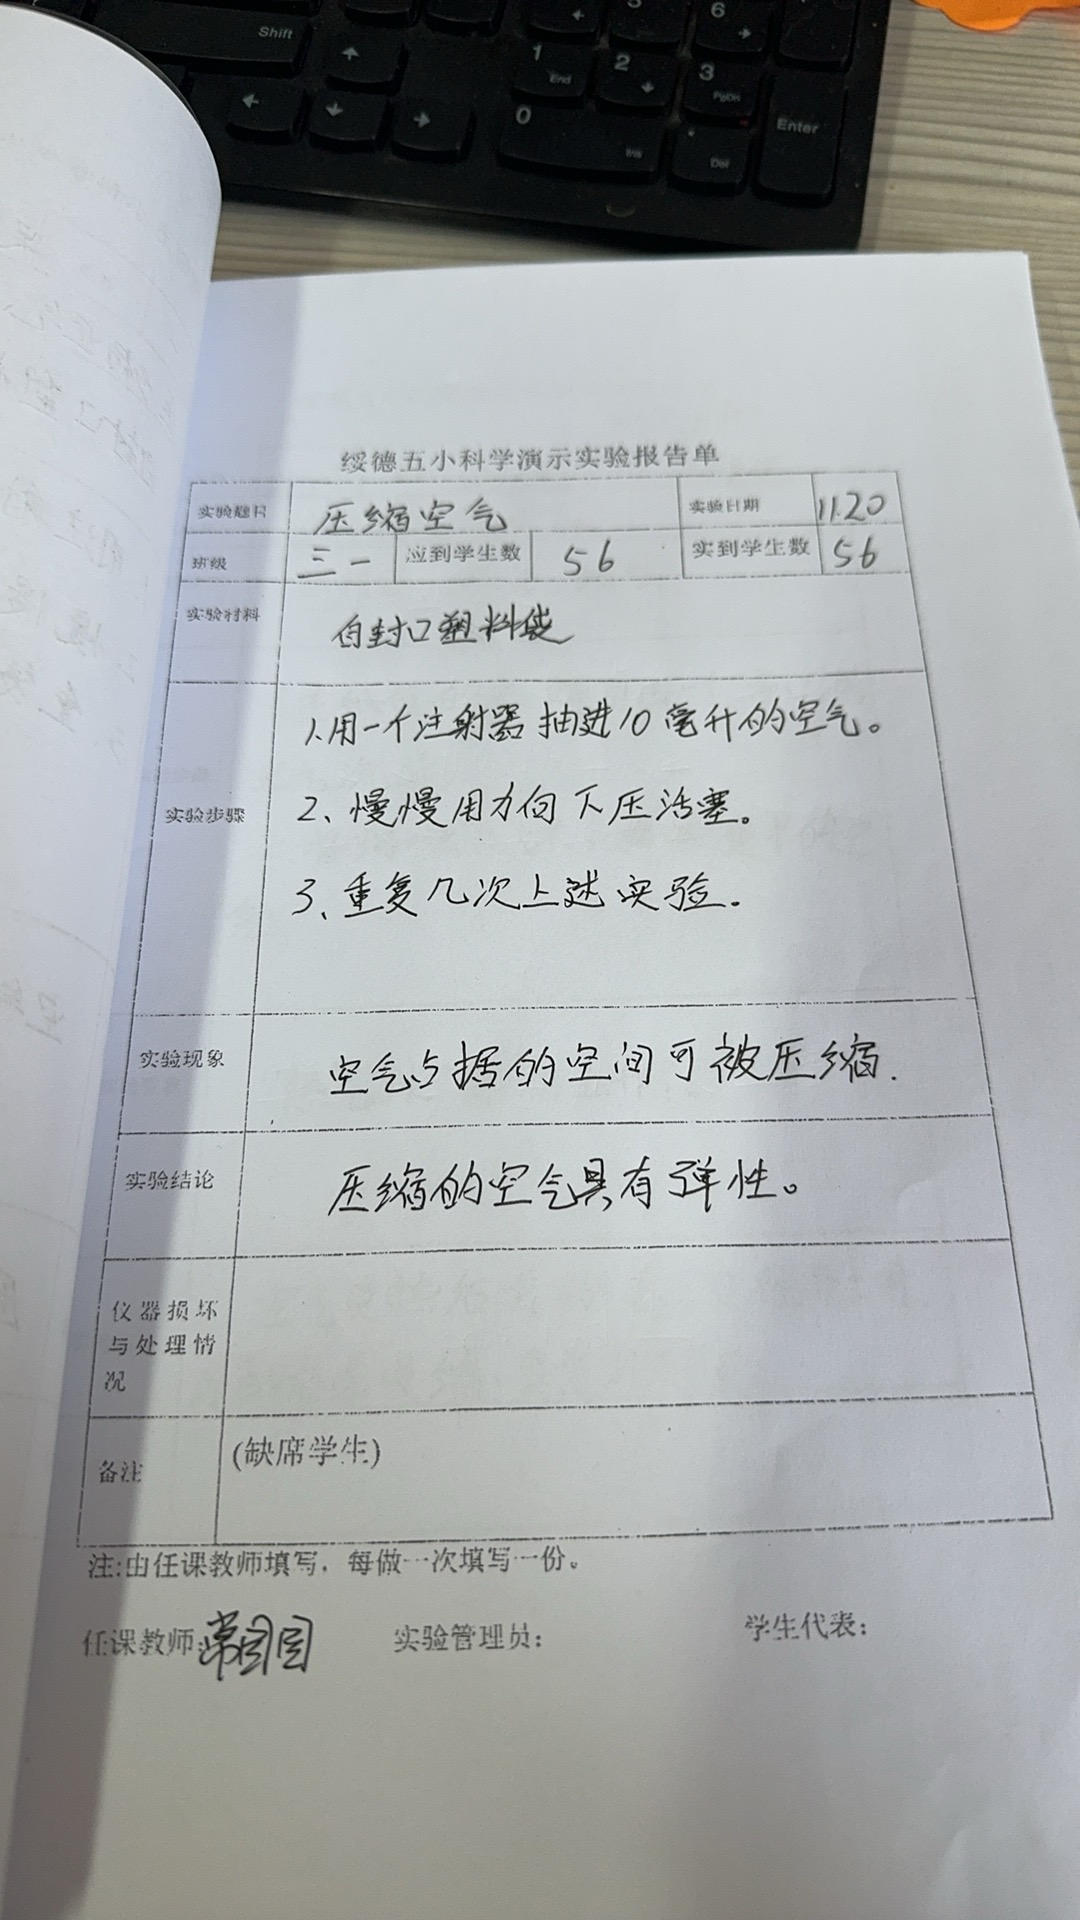 Shift
↑
←
↓
→
1 End
2 ↓
3 PgDn
6 →
0 Ins
. Del
Enter
绥德五小科学演示实验报告单
实验题目 压缩空气 实验日期 11.20
班级 三一 应到学生数 56 实到学生数 56
实验材料 自封口塑料袋
实验步骤
1、用一个注射器抽进10毫升的空气。
2、慢慢用力向下压活塞。
3、重复几次上述实验.
实验现象 空气占据的空间可被压缩.
实验结论 压缩的空气具有弹性。
仪器损坏
与处理情
况
备注 (缺席学生)
注:由任课教师填写，每做一次填写一份。
任课教师: 实验管理员: 学生代表: